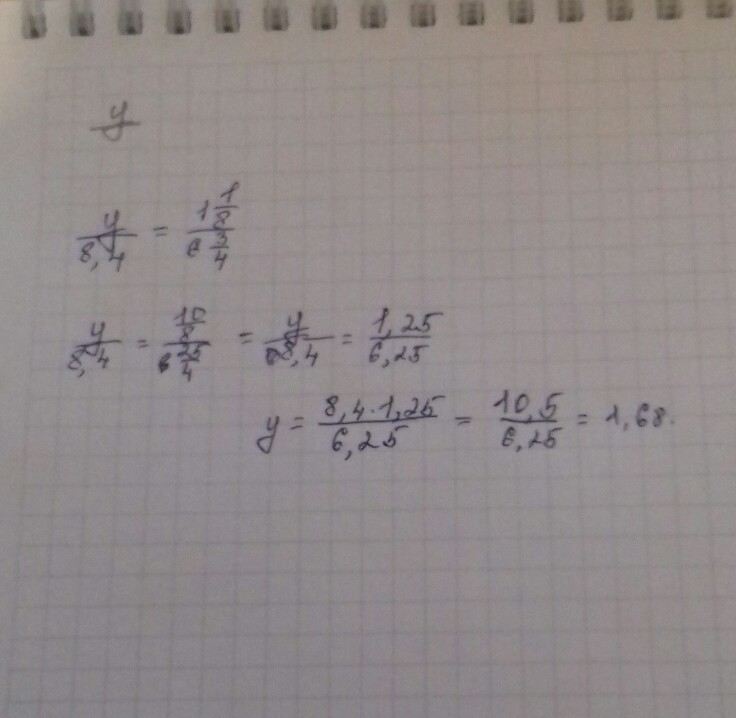 y
y/8,4 = 1 1/8 / 6 3/4
y/8,4 = 10/8 / 25/4 = y/8,4 = 1,25/6,25
y = 8,4·1,25/6,25 = 10,5/6,25 = 1,68.